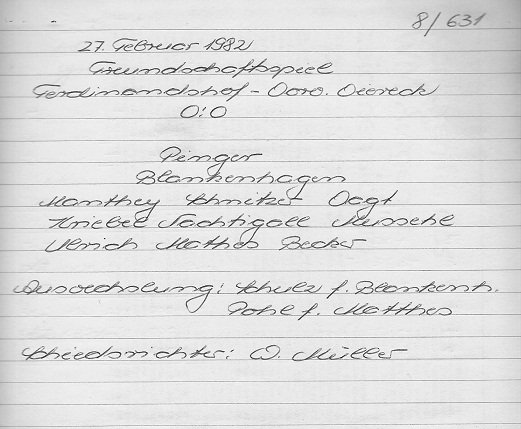 8/631
27. Februar 1982
Freundschaftsspiel
Ferdinandshof - Vorw. Viereck
0:0
Pinger
Blankenhagen
Manthey Schnitzer Vogt
Kriebel Nachtigall Muschel
Ulrich Mathes Becker
Auswechslung: Schulz f. Blankenh.
Pohl f. Matthes
Schiedsrichter: W. Müller